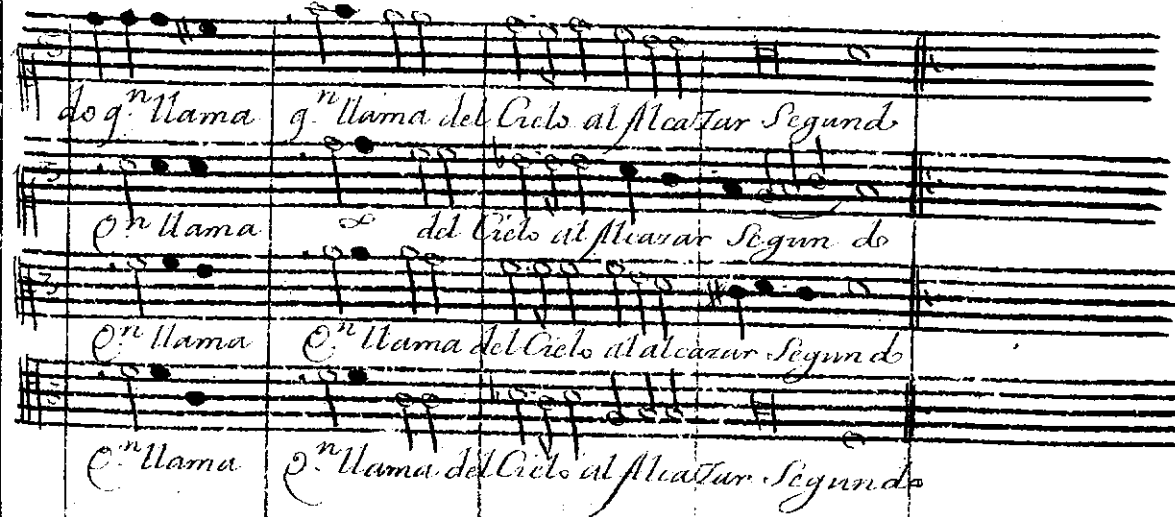 do q.n llama q.n llama del Cielo al Alcazar Segund
Q.n llama del Cielo al Alcazar Segun do
Q.n llama Q.n llama del Cielo al alcazar Segund
Q.n llama Q.n llama del Cielo al Alcazar Segundo